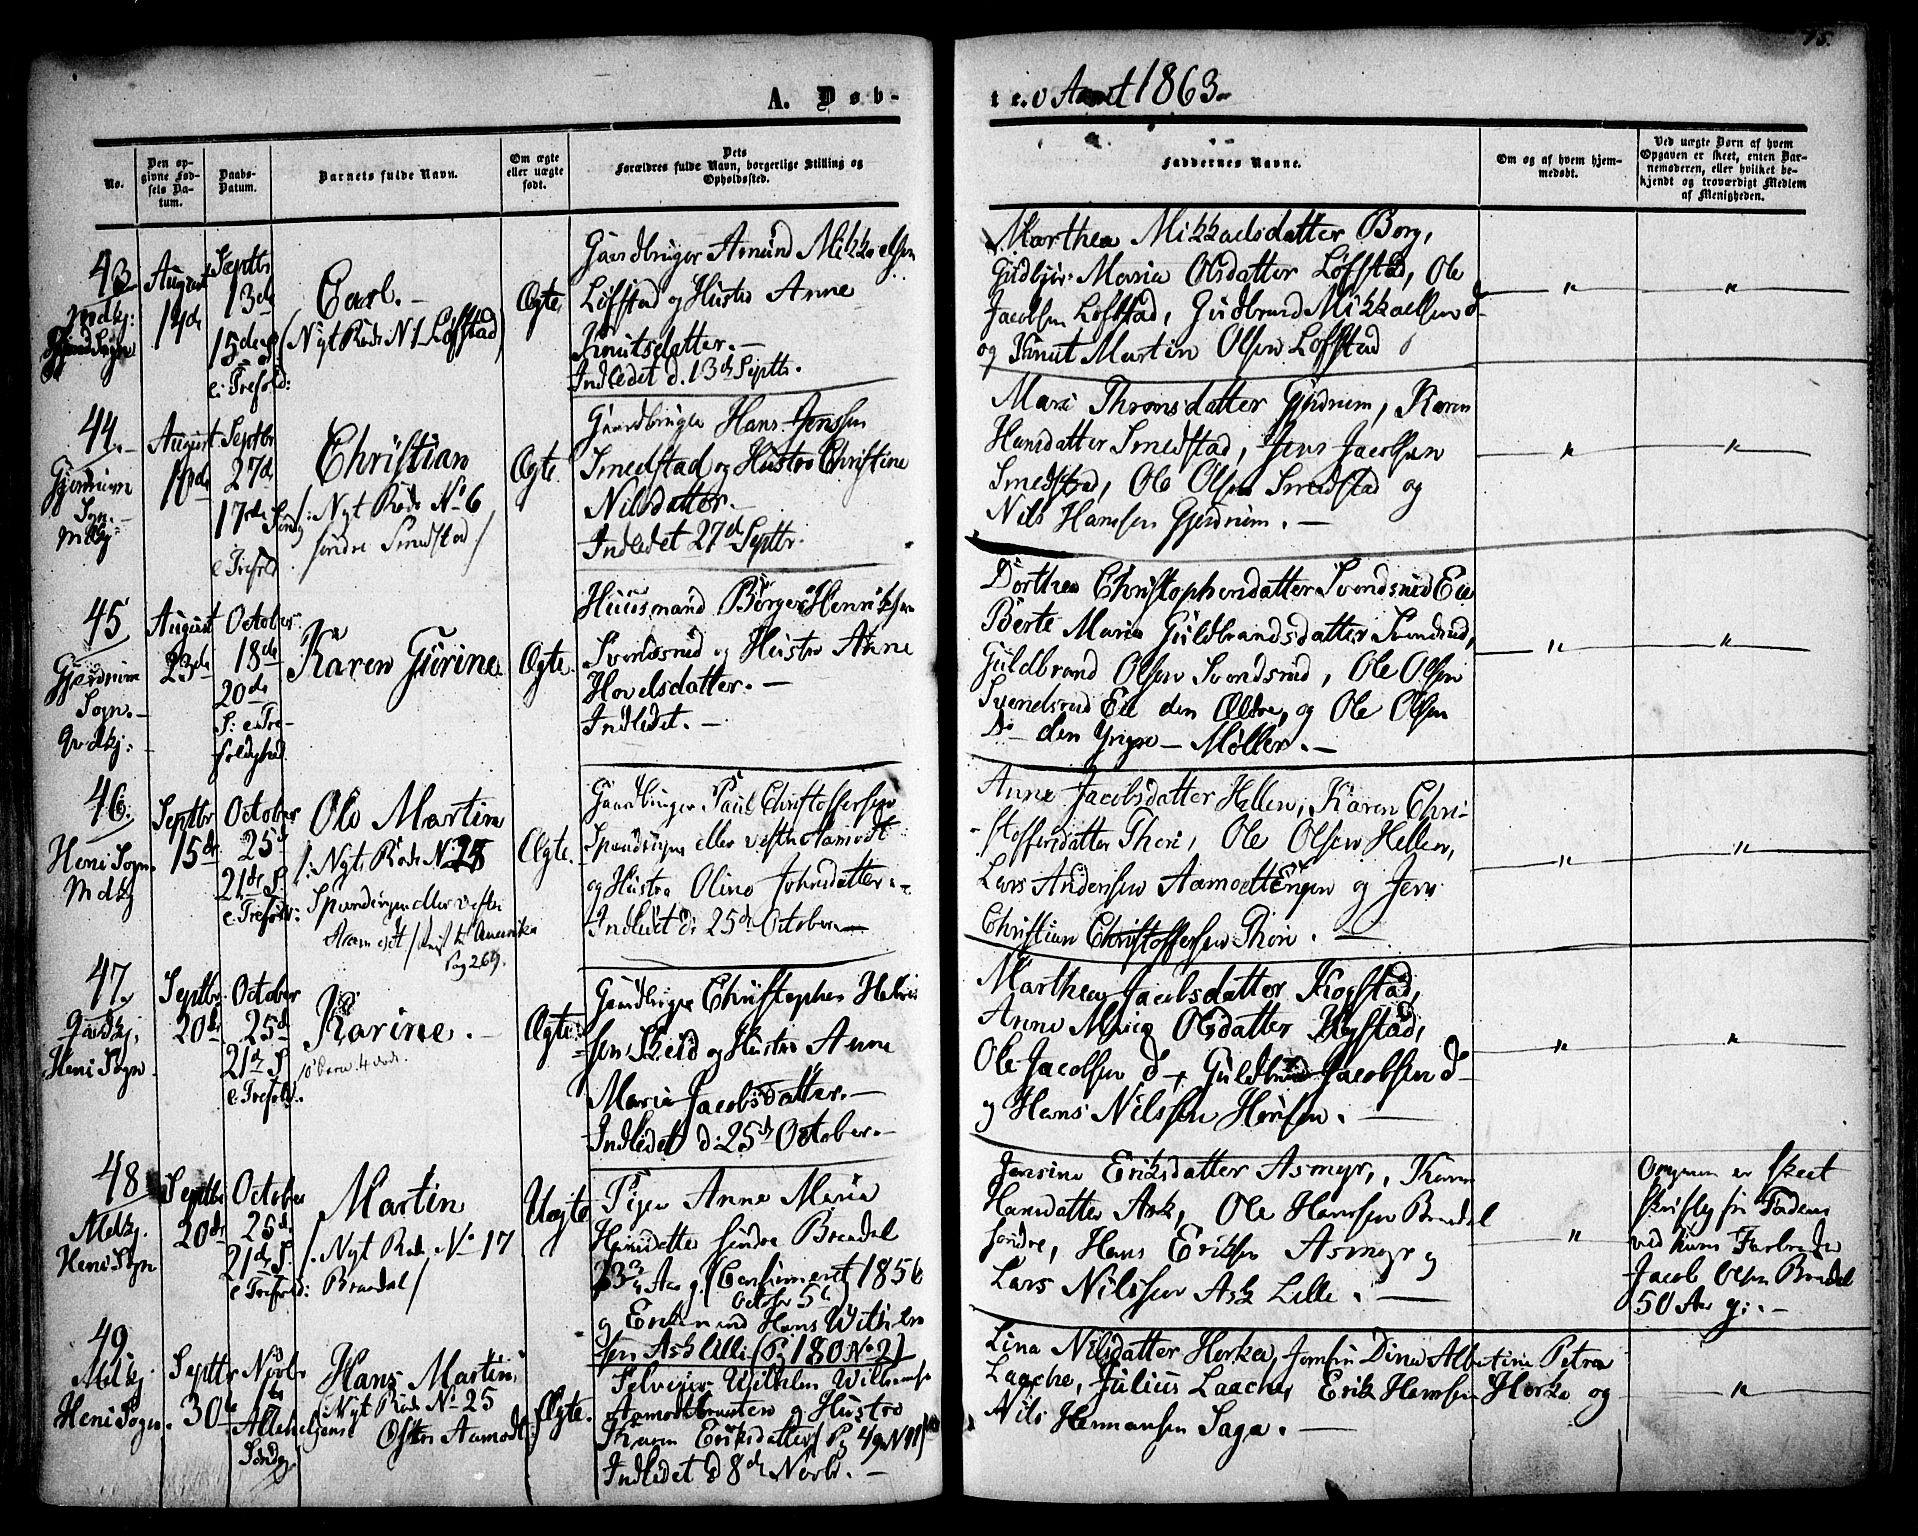 75.
A. Døb-
te. Aaret 1863.
No.
Den op-
givne Fød-
sels Da-
tum.
Daabs-
Datum.
Barnets fulde Navn.
Om ægte
eller uægte
født.
Dets
Forældres fulde Navn, borgerlige Stilling og
Opholdssted.
Faddernes Navne.
Om og af hvem hjem-
medøbt.
Ved uægte Born af hvem
Opgaven er skeet, enten Bar-
nemoderen, eller hvilket be-
kjendt og troværdigt Medlem
af Menigheden.
43
Mdkj:
August
14de
Septbr
13de
15de S.
e: Trefold:
Carl. -
(Nyt Rode N 1 Løfstad)
Ægte
Gaardbruger Amund Mikkelsen
Løfstad og Hustro Anne
Knutsdatter. -
Indledet d. 13de Septbr.
Marthea Mikkaelsdatter Borg,
Maria Olsdatter Løfstad, Ole
Jacobsen Løfstad, Guldbrand Mikkaelsen d-
og Knut Martin Olsen Løfstad
" "
44.
Gjerdrum
Sogn. -
Mdkj:
August
Septbr
27de
17de Sønd
e Trefold
Christian
/: Nyt Rode No 6
søndre Smedstad /
Ægte
Gaardbruger Hans Jenssen
Smedstad og Hustro Christine
Nilsdatter. -
Indledet 27de Septbr.
Mari Thronsdatter Gjerdrum, Karen
Hansdatter Smedstad, Jens Jacobsen
Smedstad, Ole Olsen Smedstad og
Nils Hanssen Gjerdrum. -
" "
45
Gjerdrum
Sogn. -
Qvdkj:
August
23de
October
18de
20de
S: e Tre-
foldighed.
Karen Gurine.
Ægte.
Huusmand Børger Henriksen
Svendsrud og Hustro Anne
Hovelsdatter. -
Indledet. -
Dorthea Christophersdatter Svendsrud Eie
Berte Maria Guldbrandsdatter Svendsrud,
Guldbrand Olsen Svendsrud, Ole Olsen
Svendsrud Eie den Ældre, og Ole Olsen
Do- den Yngre - Møller. -
" "
46.
Heni Sogn.
Mdkj
Septbr
15de
October
25d
21de S.
e: Trefold:
Ole Martin
/: Nyt Rode No 28
Spendingen eller vestre
Aamodt / reist til Amerika
Pag 269.
Ægte.
Gaardbruger Paul Christoffersen
Spendingen eller vestre Aamodt
og Hustro Oline Johnsdatter. -
Indledet d: 25de October. -
Anne Jacobsdatter Hellen, Karen Chri-
stoffersdatter Thori, Ole Olsen Hellen,
Lars Andersen Aamodt Engen og Jens
Christian Christoffersen Thori. -
" "
47.
Qvdkj,
Heni Sogn.
Septbr
20de
October
25d
21d S.
e Trefold.
Karine. -
10 Børn 4 døde.
Ægte.
Gaardbruger Christopher Halvor-
sen Skeid og Hustro Anne
Maria Jacobsdatter. -
Indledet d: 25de October. -
Marthea Jacobsdatter Kogstad,
Anne Maria Olsdatter Kogstad,
Ole Jacobsen d -, Guldbrand Jacobsen d -
og Hans Nilssen Hønsen. -
" "
48
Mdkj.
Heni Sogn
Septbr
20de
October
25d.
21de S.
e Trefold:
Martin
/: Nyt Rode No 17
Brædal /
Uægte
Pigen Anne Maria
Hansdatter søndre Brædal
23 3/4 Aar g. (Confirmeret 1856
October 5te)
og Enkemand Hans Wilhelm-
sen Ask Lille (Pag 180 No 2)
Jensine Eriksdatter Asmyr, Karen
Hansdatter Ask, Ole Hanssen Brædal
søndre, Hans Eriksen Asmyr og
Lars Nilssen Ask Lille. -
"
Opgaven er skeet
skriftlig fra Faderen
ved hans Farbroder
Jacob Olsen Brædal
50 Aar g: -
49
Mdkj.
Heni Sogn.
Septbr
30te
Novbr
1te
Allehelgens
Søndag.
Hans Martin,
/: Nyt Rode No 25
Østre Aamodt /
Ægte.
Selveier Wilhelm Wilhelmsen
Aamodtbraaten og Hustro
Karen Eriksdatter (Pag 49 N 11)
Indledet d 8de Novbr. -
Lina Nilsdatter Horka, Jomfru Dina Albertine Petra
Laache, Julius Laache, Erik Hanssen Horka og
Nils Hermansen Saga. -
"